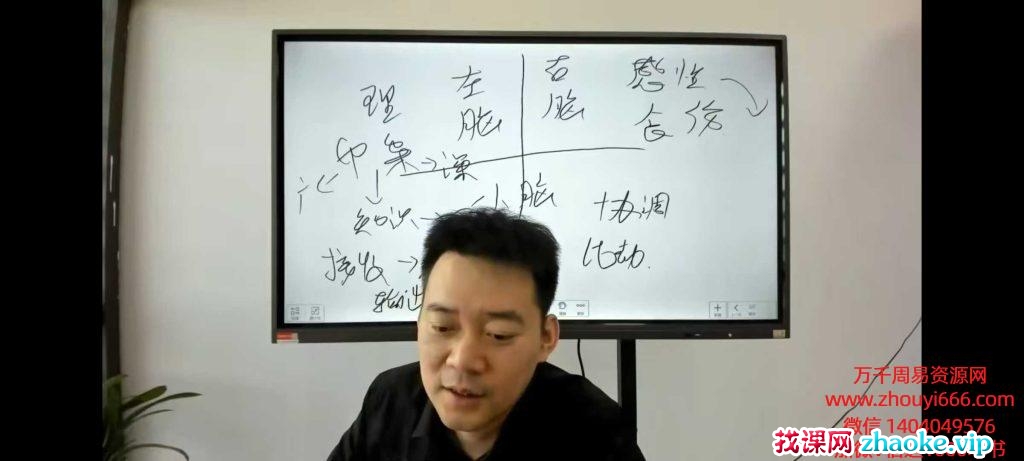 左脑 右脑 感性
理 食伤
印枭→课
知识→ 小脑 协调
接收→ 比劫.
输出
万千周易资源网
www.zhouyi666.com
微信 1404049576
找课网 zhaoke.vip